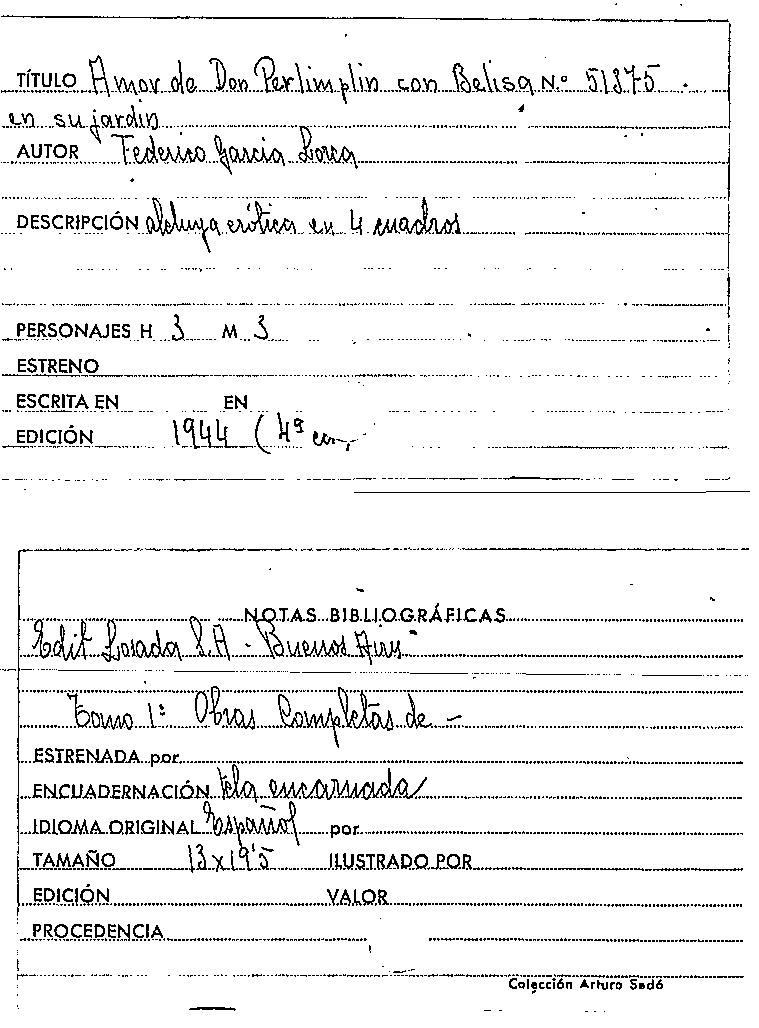 TÍTULO Amor de Don Perlimplin con Belisa N.º 51375
en su jardin
AUTOR Federico Garcia Lorca
DESCRIPCIÓN aleluya erótica en 4 cuadros
PERSONAJES H 3 M 3
ESTRENO
ESCRITA EN EN
EDICIÓN 1944 (4ª
NOTAS BIBLIOGRÁFICAS
Edit Losada S.A - Buenos Aires
Tomo 1º Obras Completas de -
ESTRENADA por
ENCUADERNACIÓN tela encarnada
IDIOMA ORIGINAL Español por
TAMAÑO 13x19'5 ILUSTRADO POR
EDICIÓN VALOR
PROCEDENCIA
Colección Arturo Sedó